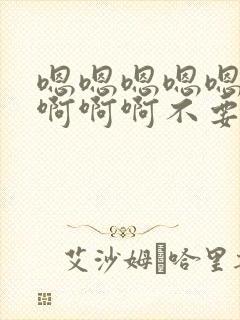 嗯嗯嗯嗯嗯
啊啊啊不要
艾沙姆·哈里